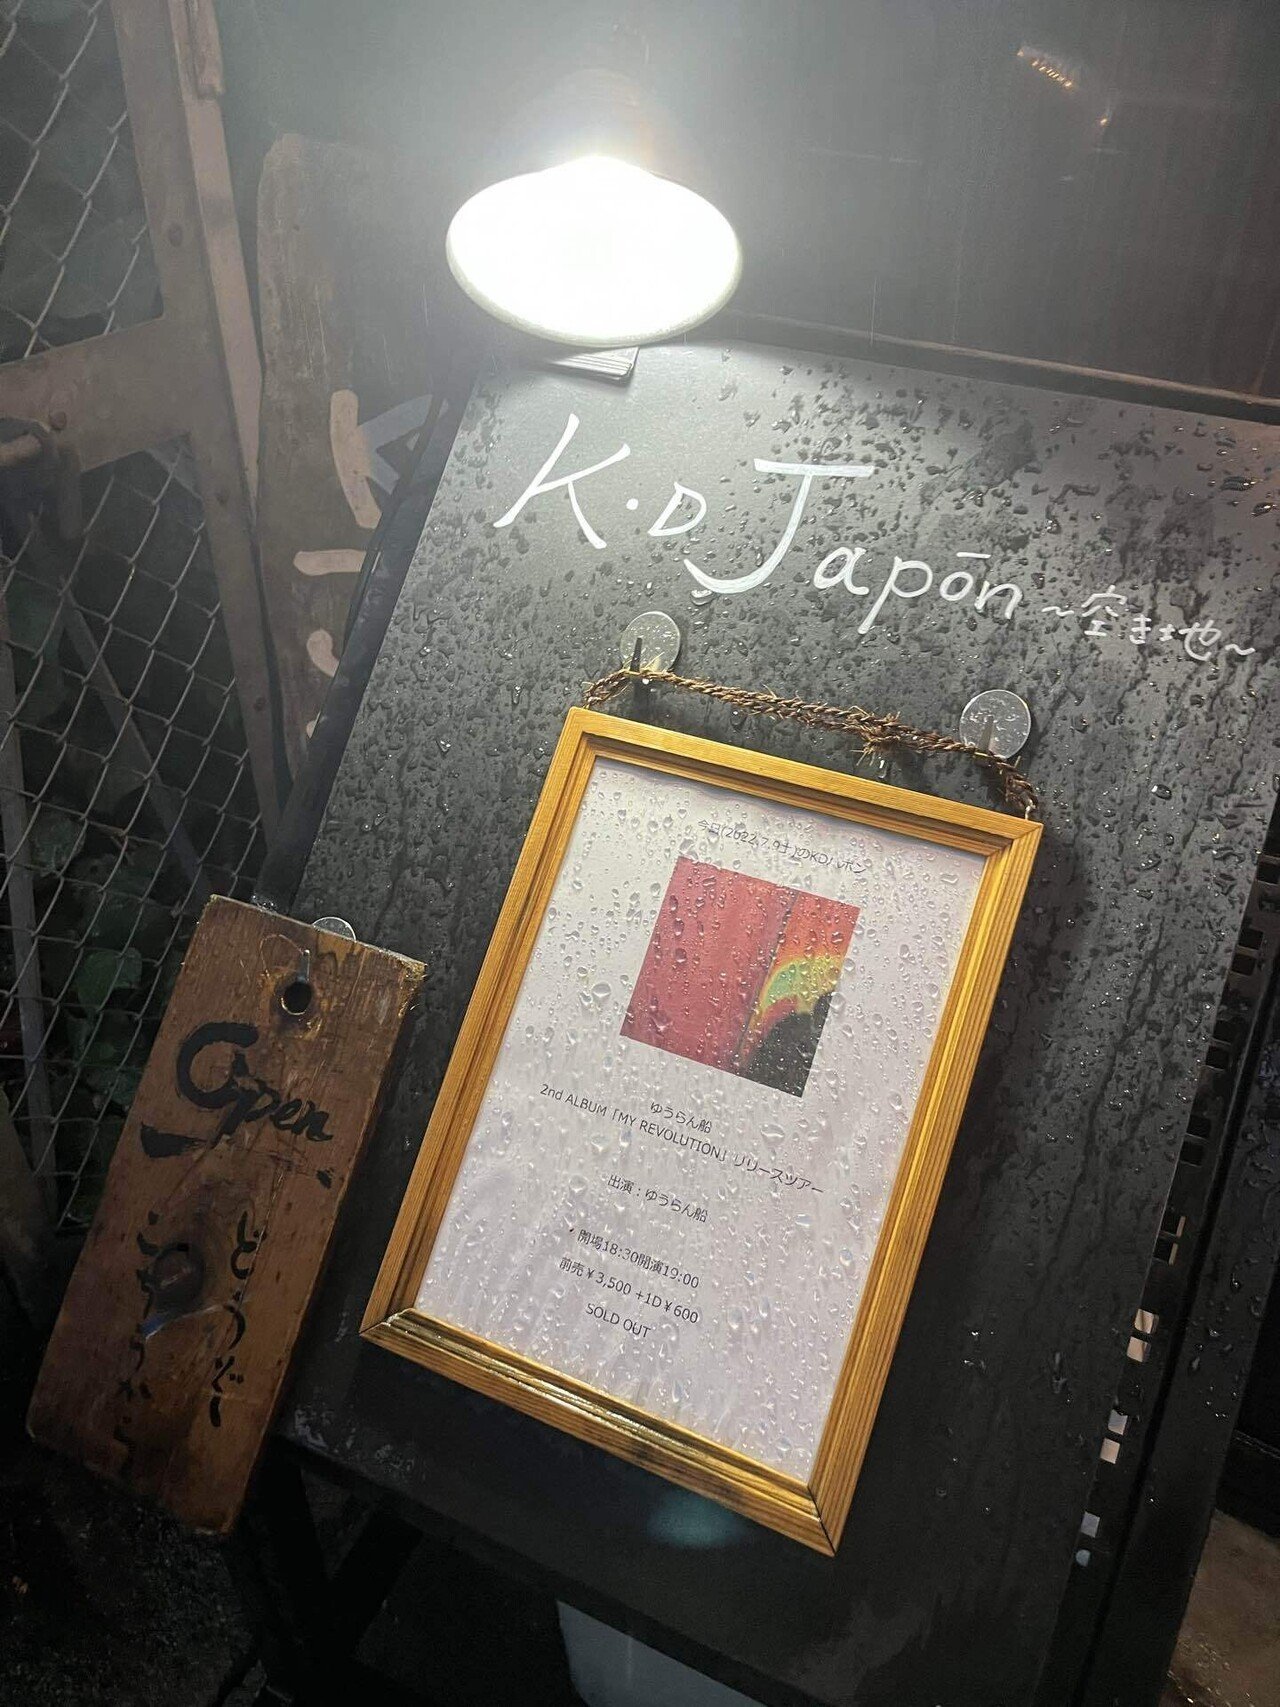 K・D Japōn ~空き地~
今日(2022.7.9土)のKDハポン
ゆうらん船
2nd ALBUM「MY REVOLUTION」リリースツアー
出演：ゆうらん船
開場18:30開演19:00
前売￥3,500 +1D￥600
SOLD OUT
Open
どうぞー